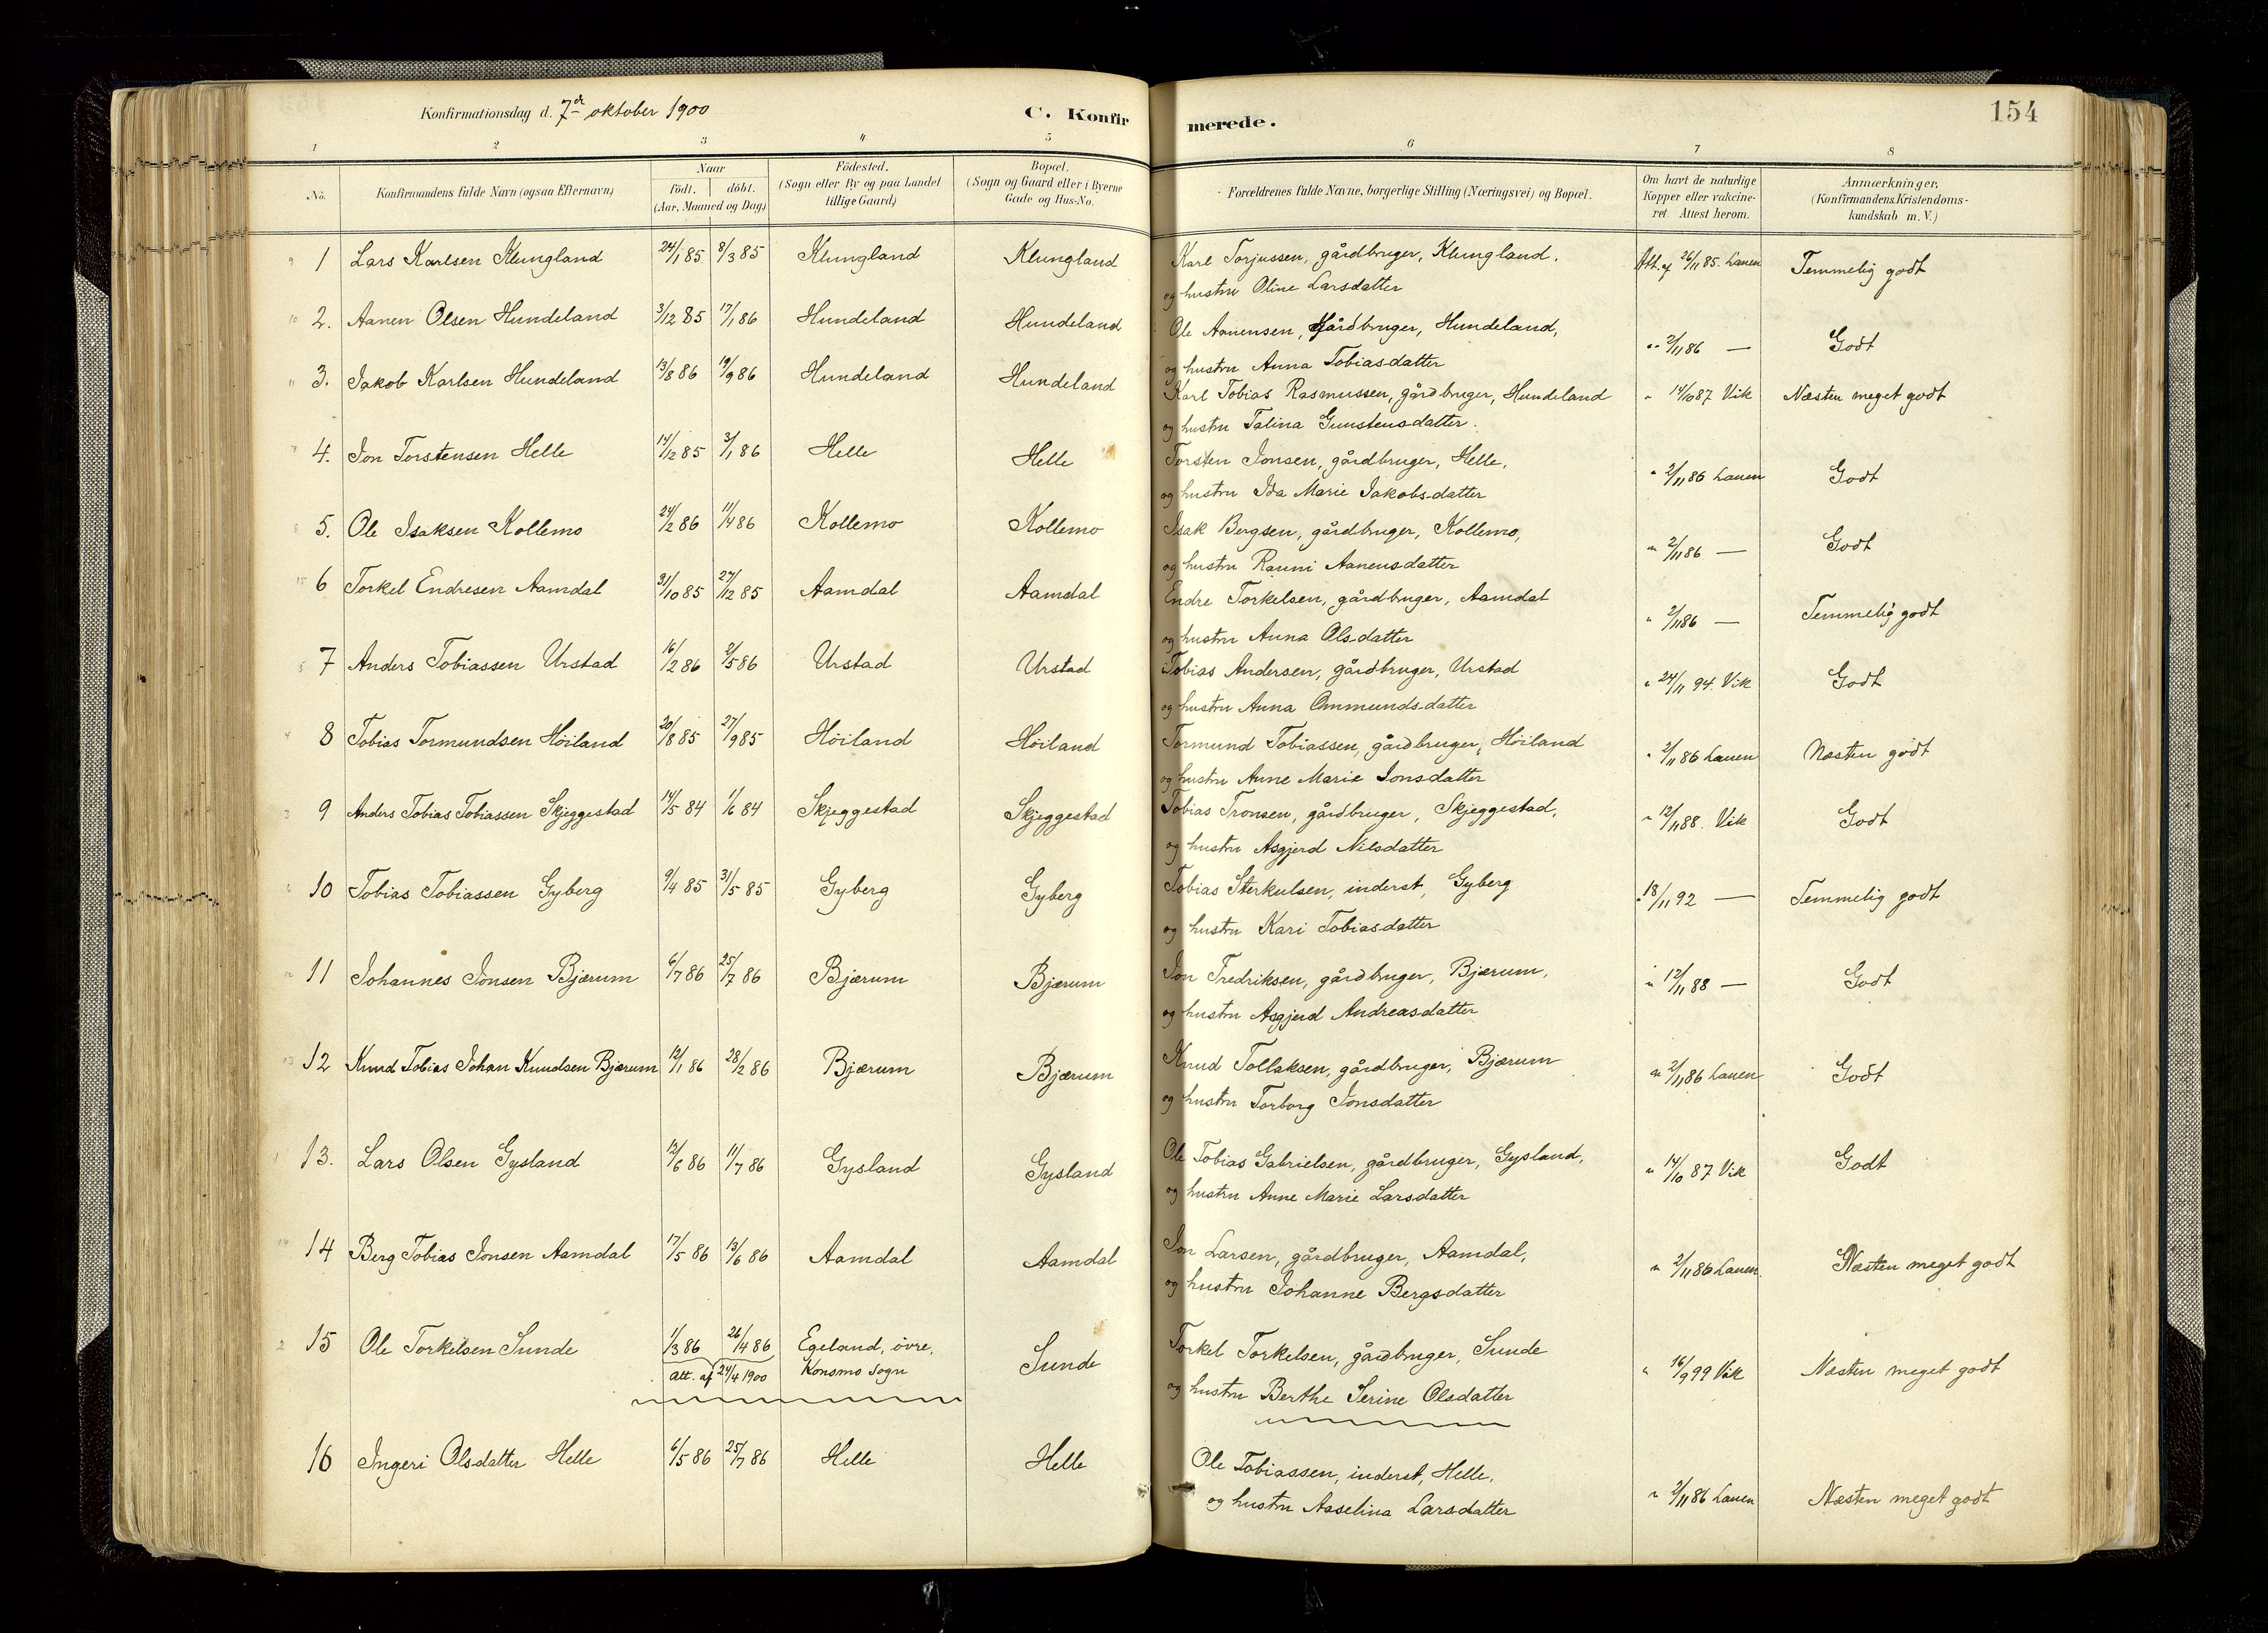 Konfirmationsdag d. 7de oktober 1900
C. Konfir
merede.
154
1 2 3 4 5 6 7 8
No. Konfirmandens fulde Navn (ogsaa Efternavn) Naar födt. döbt. (Aar, Maaned og Dag) Födested. (Sogn eller By og paa Landet tillige Gaard) Bopæl. (Sogn og Gaard eller i Byerne Gade og Hus-No. Forældrenes fulde Navne, borgerlige Stilling (Næringsvei) og Bopæl. Om havt de naturlige Kopper eller vakcineret. Attest herom. Anmærkninger. (Konfirmandens Kristendomskundskab m. V.)
1 Lars Karlsen Klungland 24/1 85 8/3 85 Klungland Klungland Karl Torjussen, gårdbruger, Klungland. Att. af 26/11 85. Lauen Temmelig godt
og hustru Oline Larsdatter
2. Aanen Olsen Hundeland 3/12 85 17/1 86 Hundeland Hundeland Ole Aanensen, gårdbruger, Hundeland, " 2/11 86 — Godt
og hustru Anna Tobiasdatter
3. Jakob Karlsen Hundeland 13/8 86 19/9 86 Hundeland Hundeland Karl Tobias Rasmussen, gårdbruger, Hundeland " 14/10 87 Vik Næsten meget godt
og hustru Talina Gunstensdatter.
4. Jon Torstensen Helle 14/12 85 3/1 86 Helle Helle Torsten Jonsen, gårdbruger, Helle, " 2/11 86 Lauen Godt
og hustru Ida Marie Jakobsdatter
5. Ole Isaksen Kollemo 24/2 86 11/4 86 Kollemo Kollemo Isak Bergsen, gårdbruger, Kollemo, " 2/11 86 — Godt
og hustru Ranni Aanensdatter
6 Torkel Endresen Aamdal 31/10 85 27/12 85 Aamdal Aamdal Endre Torkelsen, gårdbruger, Aamdal " 2/11 86 — Temmelig godt
og hustru Anna Olsdatter
7 Anders Tobiassen Urstad 16/2 86 2/5 86 Urstad Urstad Tobias Andersen, gårdbruger, Urstad " 24/11 94. Vik Godt
og hustru Anna Ommundsdatter
8 Tobias Tormundsen Höiland 20/8 85 27/9 85 Höiland Höiland Tormund Tobiassen, gårdbruger, Höiland " 2/11 86 Lauen Næsten godt
og hustru Anne Marie Jonsdatter
9 Anders Tobias Tobiassen Skjeggestad 14/5 84 1/6 84 Skjeggestad Skjeggestad Tobias Tronsen, gårdbruger, Skjeggestad, " 12/11 88. Vik Godt
og hustru Asgjerd Nilsdatter
10 Tobias Tobiassen Gyberg 9/4 85 31/5 85 Gyberg Gyberg Tobias Sterkulsen, inderst, Gyberg " 18/11 92 — Temmelig godt
og hustru Kari Tobiasdatter
11 Johannes Jonsen Bjærum 6/7 86 25/7 86 Bjærum Bjærum Jon Fredriksen, gårdbruger, Bjærum, " 12/11 88 — Godt
og hustru Asgjerd Andreasdatter
12 Knud Tobias Johan Knudsen Bjærum 12/1 86 28/2 86 Bjærum Bjærum Knud Tollaksen, gårdbruger, Bjærum " 2/11 86 Lauen Godt
og hustru Torborg Jonsdatter
13. Lars Olsen Gysland 12/6 86 11/7 86 Gysland Gysland Ole Tobias Gabrielsen, gårdbruger, Gysland, " 14/10 87 Vik Godt
og hustru Anne Marie Larsdatter
14 Berg Tobias Jonsen Aamdal 17/5 86 13/6 86 Aamdal Aamdal Jon Larsen, gårdbruger, Aamdal, " 2/11 86 Lauen. Næsten meget godt
og hustru Johanne Bergsdatter
15 Ole Torkelsen Sunde 1/3 86 26/4 86 Egeland, övre, Sunde Torkel Torkelsen, gårdbruger, Sunde " 16/9 99 Vik Næsten meget godt
Att. af 24/4 1900 Konsmo Sogn og hustru Berthe Serine Olsdatter
16 Ingeri Olsdatter Helle 6/5 86 25/7 86 Helle Helle Ole Tobiassen, inderst, Helle, " 2/11 86 Lauen Næsten meget godt
og hustru Aaselina Larsdatter